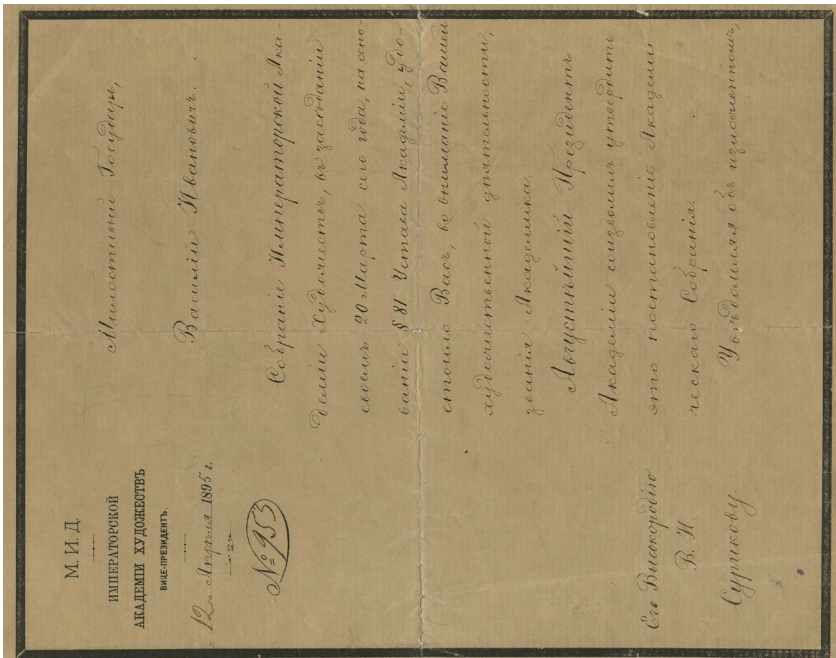 М. И. Д.
ИМПЕРАТОРСКОЙ
АКАДЕМІИ ХУДОЖЕСТВЪ
ВИЦЕ-ПРЕЗИДЕНТЪ.
„12„ Апрѣля 1895 г.
№ 953
Милостивый Государь,
Василій Ивановичъ.
Собраніе Императорской Ака
деміи Художествъ, въ засѣданіи
своемъ 20 Марта сего года, на осно-
ваніи § 81 Устава Академіи, удо-
стоило Васъ, во вниманіе Вашей
художественной дѣятельности,
званія Академика.
Августѣйшій Президентъ
Академіи соизволилъ утвердить
это постановленіе Академи
ческаго Собранія.
Увѣдомляя объ изложенномъ,
Его Высокородію
В. И.
Сурикову.